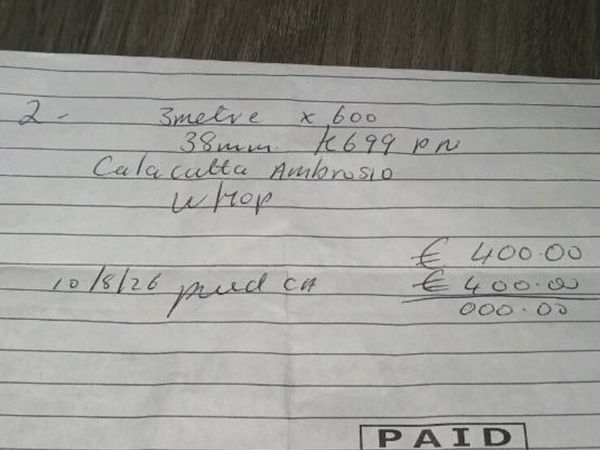 2 - 3metre x 600
38mm K699 PN
Calacutta Ambrosio
W/TOP
€ 400.00
10/8/26 paid CA € 400.00
000.00
PAID